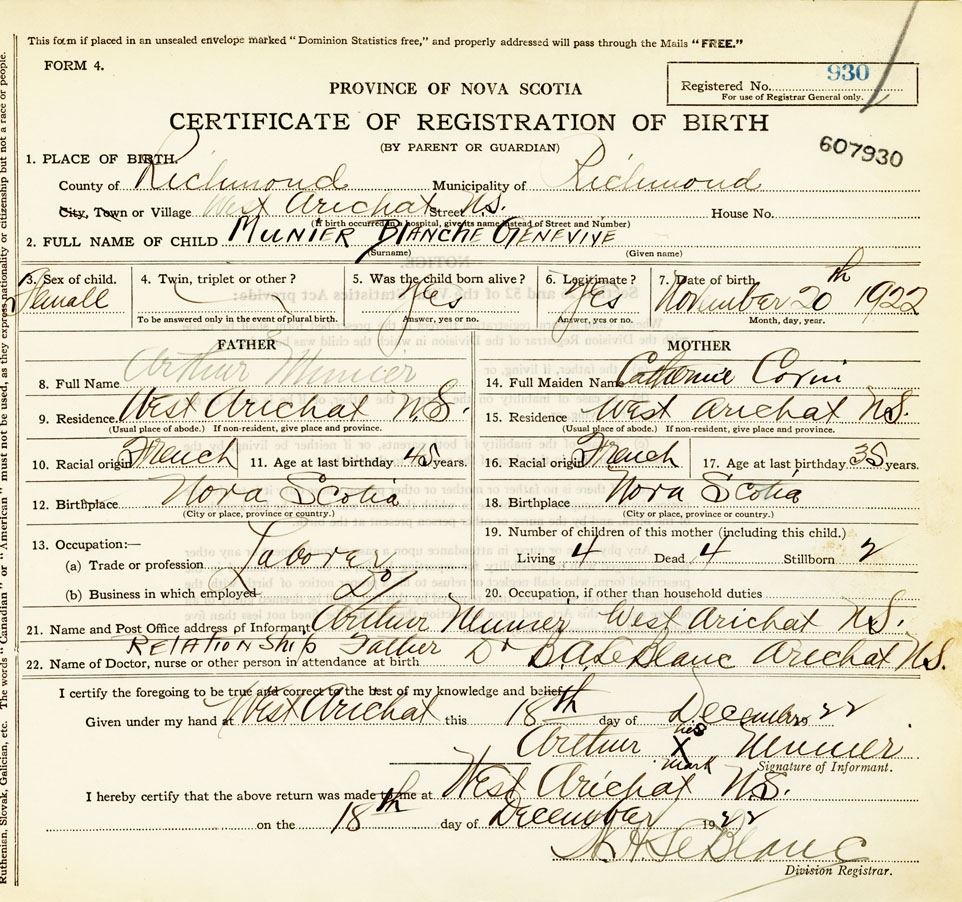 This form if placed in an unsealed envelope marked "Dominion Statistics free," and properly addressed will pass through the Mails "FREE."
FORM 4.
930
Registered No.
For use of Registrar General only.
PROVINCE OF NOVA SCOTIA
CERTIFICATE OF REGISTRATION OF BIRTH
607930
(BY PARENT OR GUARDIAN)
1. PLACE OF BIRTH.
County of Richmond Municipality of Richmond
City, Town or Village West Arichat Street N.S. House No.
(If birth occurred in a hospital, give its name instead of Street and Number)
2. FULL NAME OF CHILD MUNIER BLANCHE GENEVIVE
(Surname) (Given name)
3. Sex of child. Femall
4. Twin, triplet or other?
To be answered only in the event of plural birth.
5. Was the child born alive? Yes
Answer, yes or no.
6. Legitimate? Yes
Answer, yes or no.
7. Date of birth November 20th 1922
Month, day, year.
FATHER
8. Full Name Arthur Munier
9. Residence West Arichat N.S.
(Usual place of abode.) If non-resident, give place and province.
10. Racial origin French 11. Age at last birthday 45 years.
12. Birthplace Nova Scotia
(City or place, province or country.)
13. Occupation:—
(a) Trade or profession Laborer
(b) Business in which employed Do
MOTHER
14. Full Maiden Name Catherine
15. Residence West Arichat N.S.
(Usual place of abode.) If non-resident, give place and province.
16. Racial origin French 17. Age at last birthday 35 years.
18. Birthplace Nova Scotia
(City or place, province or country.)
19. Number of children of this mother (including this child.)
Living 4 Dead 4 Stillborn 2
20. Occupation, if other than household duties
21. Name and Post Office address of Informant Arthur Munier West Arichat N.S.
RELATIONSHIP Father
22. Name of Doctor, nurse or other person in attendance at birth Dr B.A. LeBlanc Arichat N.S.
I certify the foregoing to be true and correct to the best of my knowledge and belief.
Given under my hand at West Arichat this 18th day of December 22
Arthur his X mark Munier
Signature of Informant.
I hereby certify that the above return was made to me at West Arichat N.S.
on the 18th day of December 1922
LeBlanc
Division Registrar.
Ruthenian, Slovak, Galician, etc. The words "Canadian" or "American" must not be used, as they express nationality or citizenship but not a race or people.